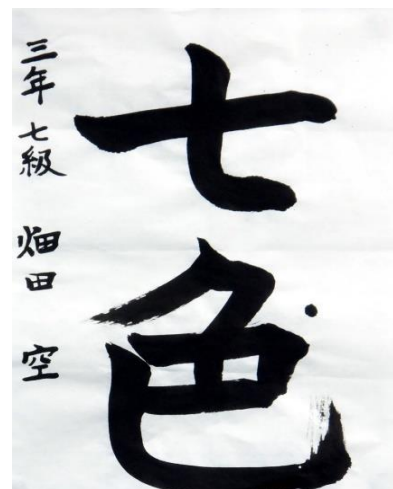 七色
三年 七級 畑田 空